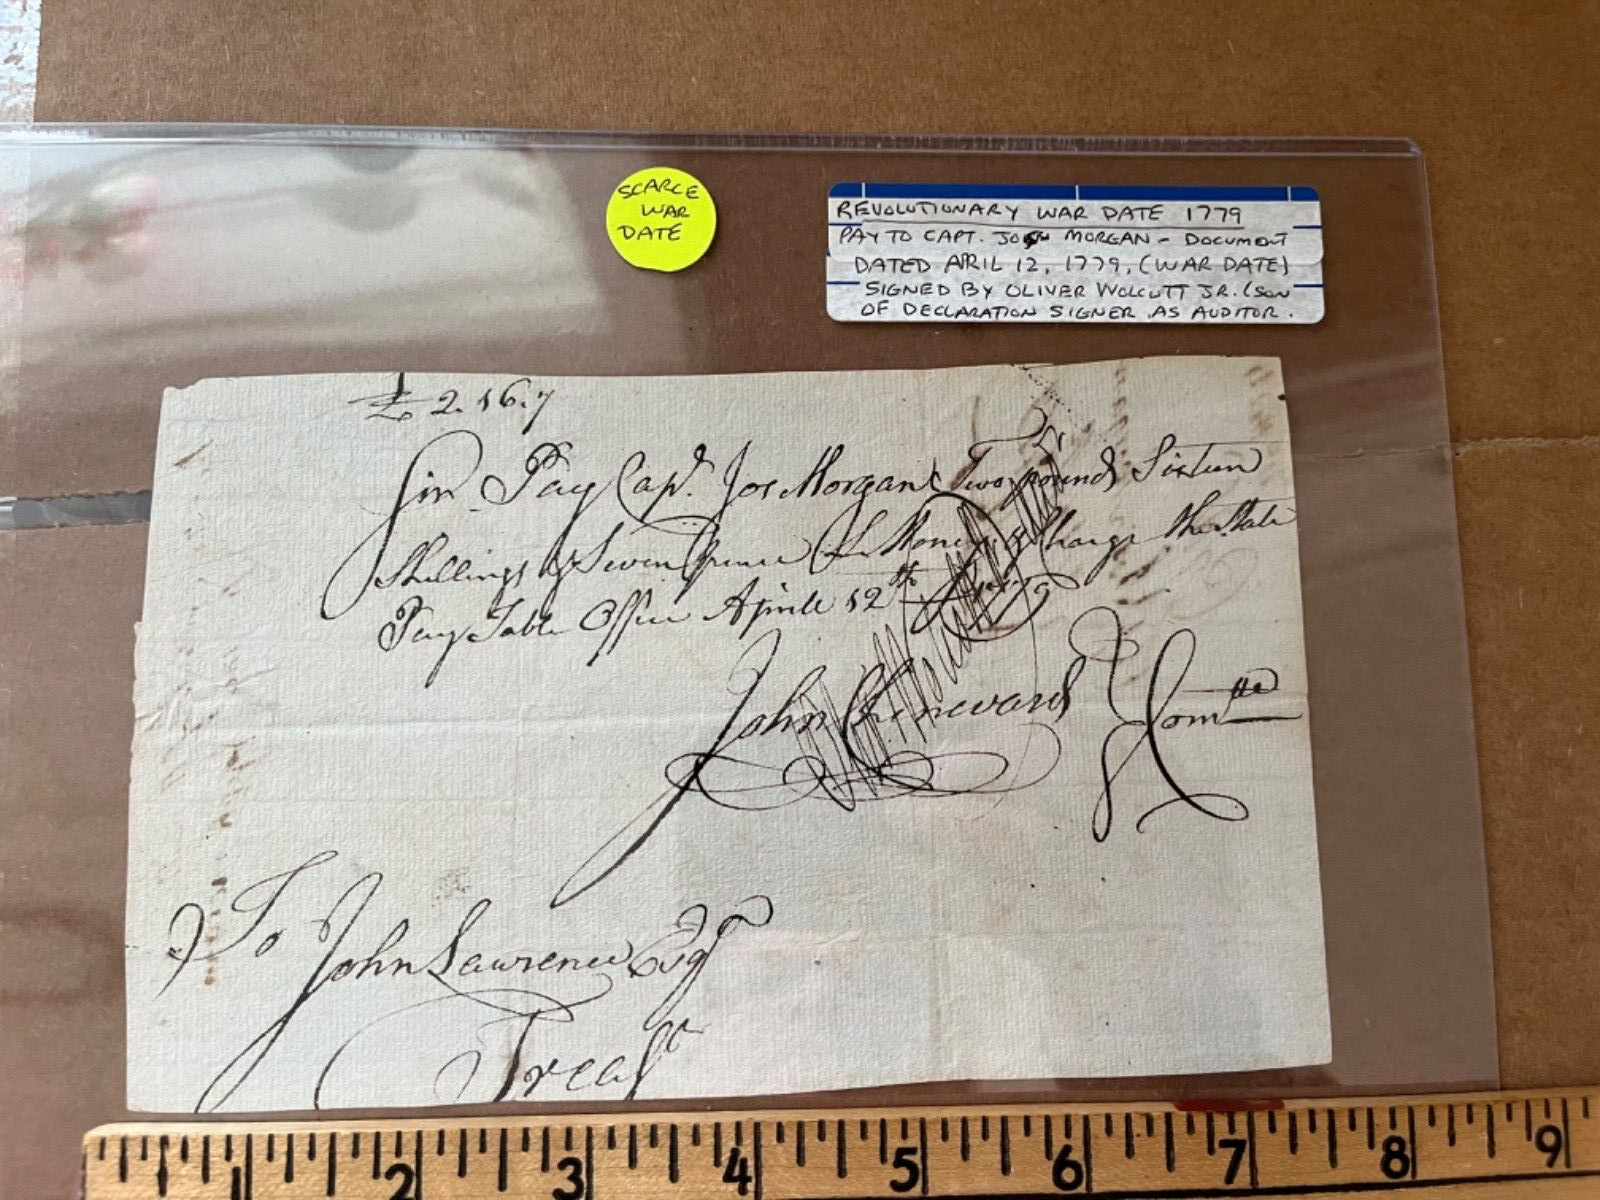 SCARCE
WAR
DATE
REVOLUTIONARY WAR DATE 1779
PAY TO CAPT. JOHN MORGAN - DOCUMENT
DATED APRIL 12, 1779, (WAR DATE)
SIGNED BY OLIVER WOLCUTT JR. (SON
OF DECLARATION SIGNER AS AUDITOR.
£2.16.7
Sir Pay Capt. Jos Morgan Two pounds Sixteen
Shillings & Seven pence L. Money & Charge the State
Pay Table Office Aprile 12th 1779
John Chenevard Comttee
To
John Lawrence Esqr
Treasr
1 2 3 4 5 6 7 8 9